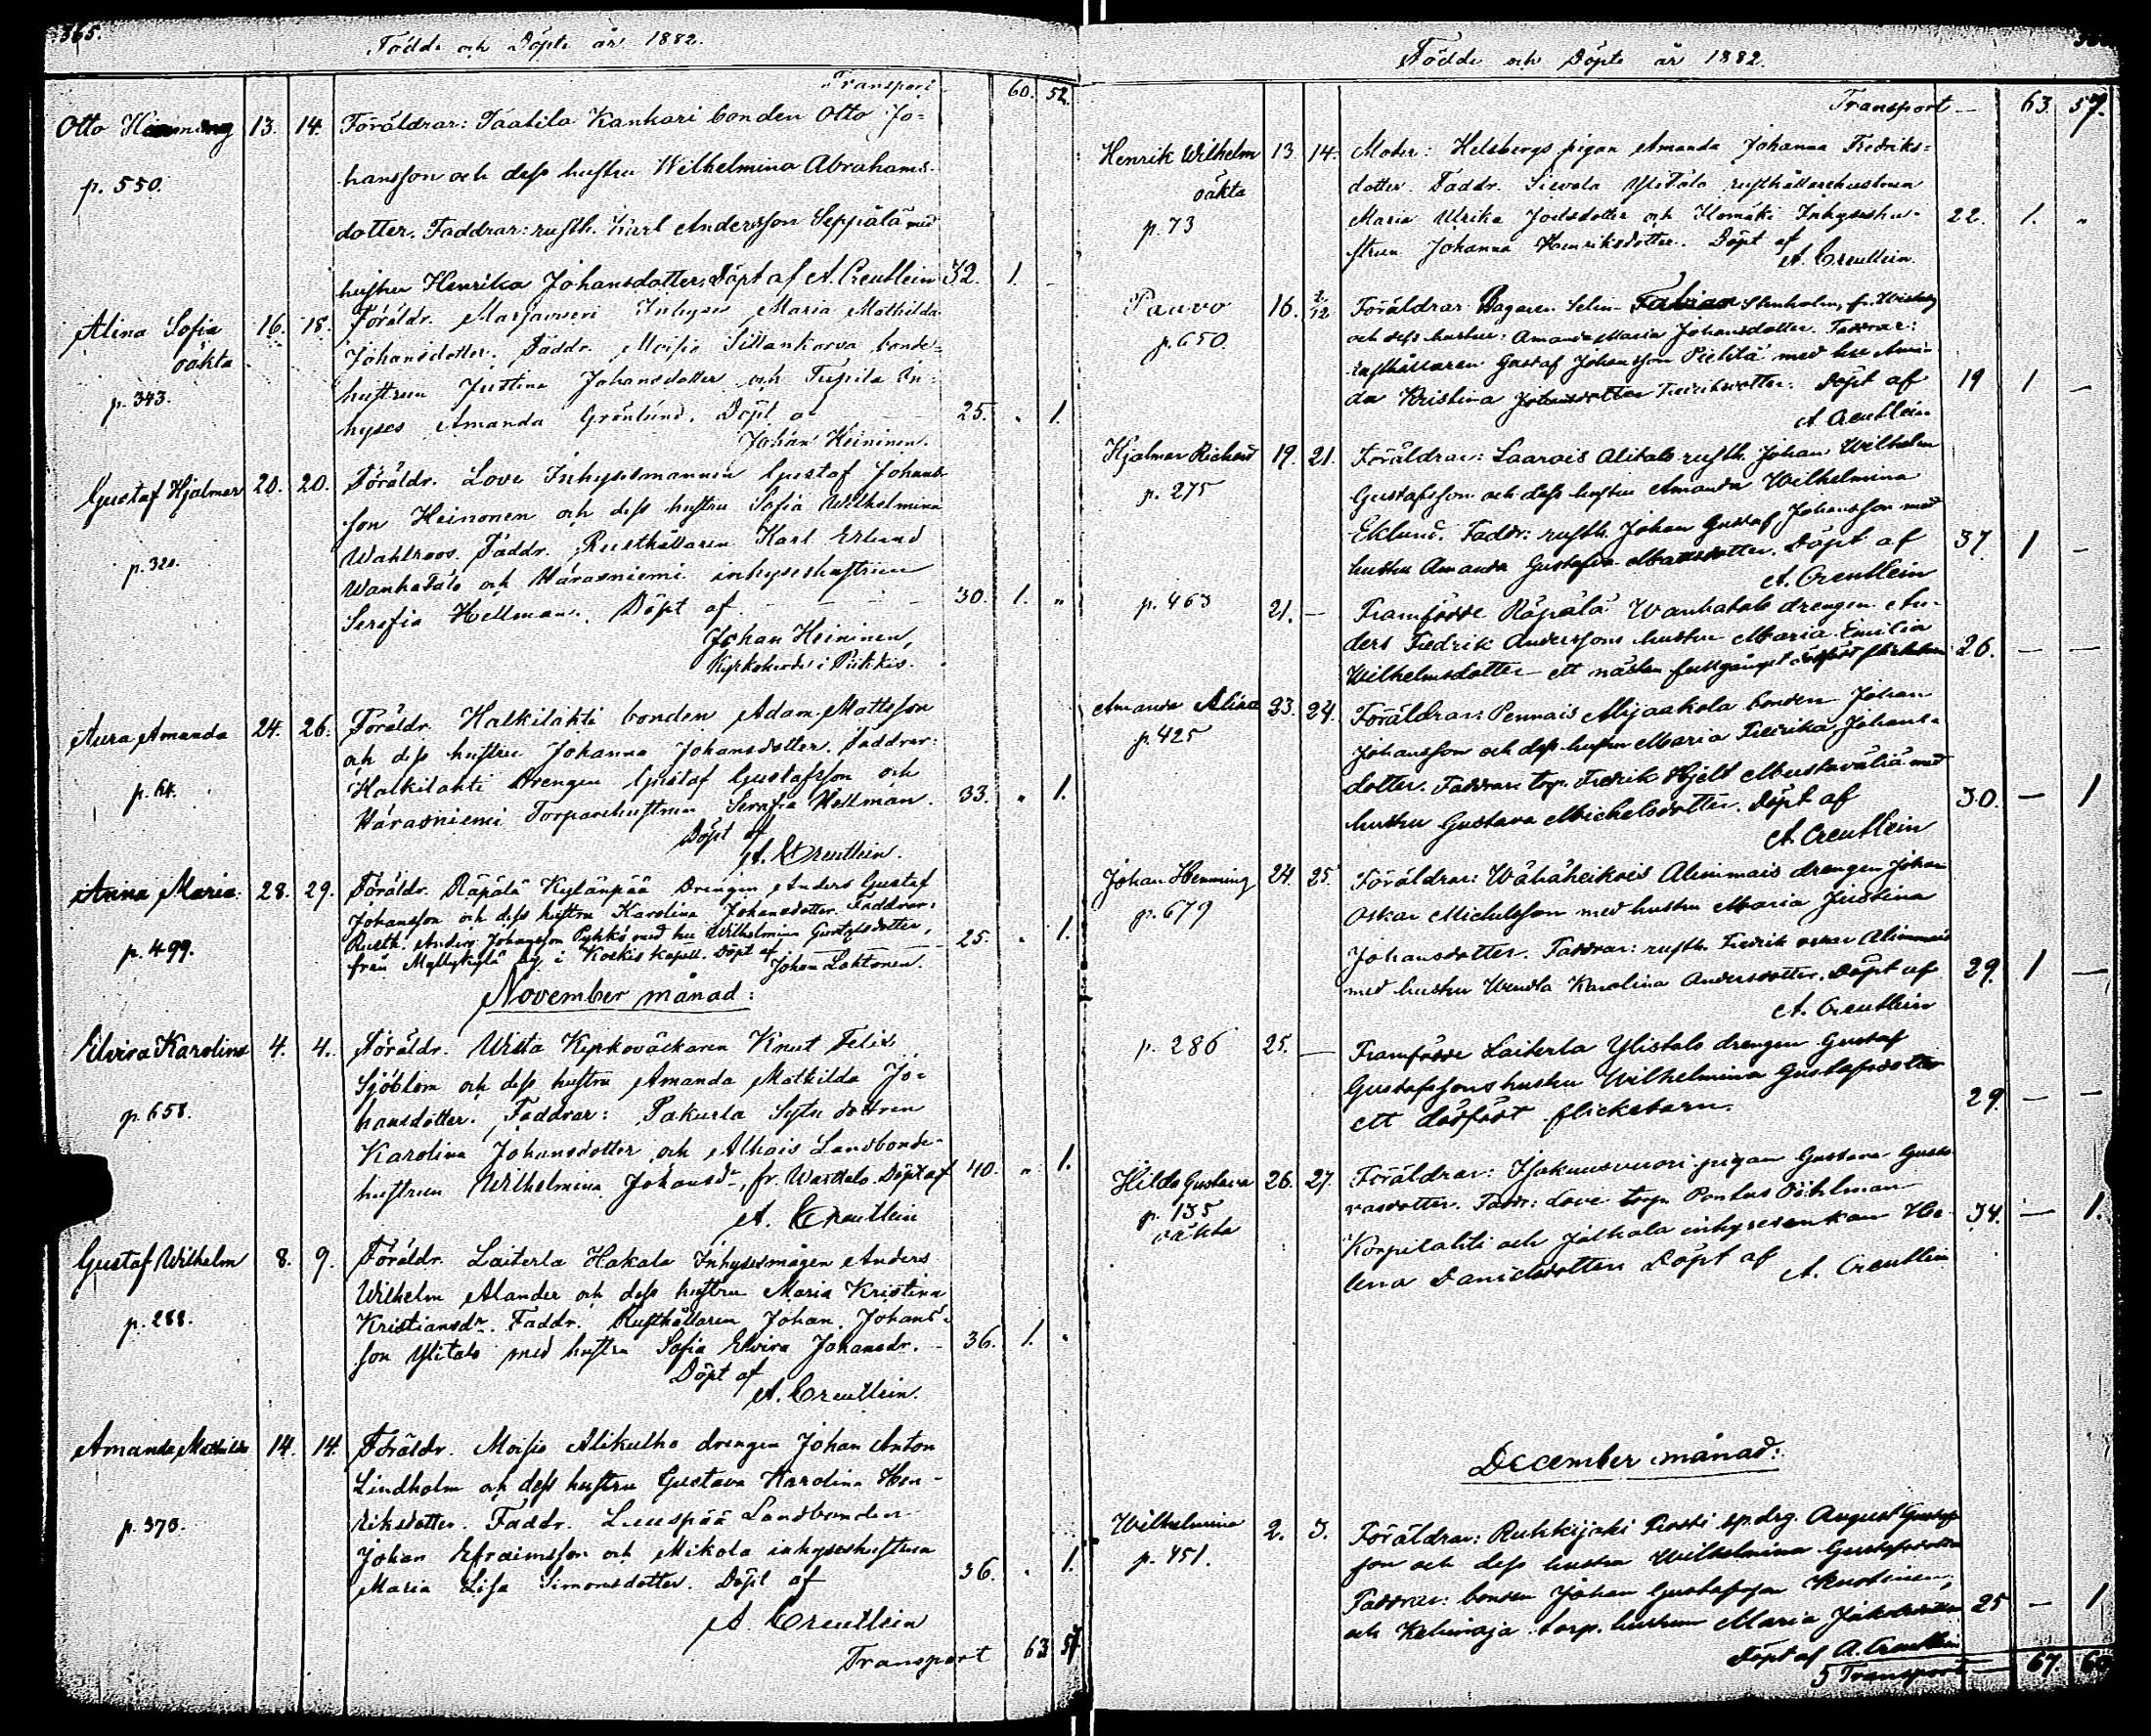 365.
Födde och Döpte år 1882.
Transport 60. 52.
Otto Henning 13. 14. Föräldrar: Taatila Kankari bonden Otto Jo=
hansson och dess hustru Wilhelmina Abrahams-
p. 550.
dotter. Faddrar: rusth. Karl Andersson Seppälä med
hustru Henrika Johansdotter. Döpt af A. Creutlein 32. 1. -
Alina Sofia 16. 18. Föräldr. Inhyses Maria Mathilda
oäkta Johansdotter. Faddr. Moisio Sillankorva bonde=
p. 343. hustrun Justina Johansdotter och In-
hyses Amanda Grönlund. Döpt af 25. " 1.
Johan Heininen.
Gustaf Hjalmar 20. 20. Föräldr. Love Inhysesmannen Gustaf Johans-
son Heinonen och dess hustru Sofia Wilhelmina
p. 320. Wahlroos. Faddr. Rusthållaren Karl Erlund
Wanhatalo och Härasniemi inhyseshustrun
Serafia Hellman. Döpt af 30. 1. "
Johan Heininen,
Kyrkoherde i Piikkis.
Aura Amanda 24. 26. Föräldr. Halkilahti bonden Adam Mattsson
och dess hustru Johanna Johansdotter. Faddrar:
p. 64. Halkilahti Drengen Gustaf Gustafsson och
Härasniemi Torparehustrun Serafia Hellman. 33. " 1.
Döpt af
A. Creutlein.
Anna Maria 28. 29. Föräldr. Räpälä Kylänpää Drengen Anders Gustaf
Johansson och dess hustru Karolina Johansdotter. Faddrar:
Rusth. Anders Johansson Pyhkö med hu Wilhelmina Gustafsdotter,
p. 499. från Myllykylä by i Koskis kapell. Döpt af 25. " 1.
Johan Laktonen.
November månad:
Elvira Karolina 4. 4. Föräldr. Wista Kyrkoväckaren Knut Felix
Sjöblom och dess hustru Amanda Mathilda Jo-
p. 658. hansdotter. Faddrar: Pakurla Sytn dottren
Karolina Johansdotter och Alhais Landbonde-
hustrun Wilhelmina Johansdr, fr. Döpt af 40. " 1.
A. Creutlein
Gustaf Wilhelm 8. 9. Föräldr. Laiterla Hakala Inhysesmågen Anders
Wilhelm Alander och dess hustru Maria Kristina
p. 288. Kristiansdr. Faddr. Rusthållaren Johan Johans-
son Ylitalo med hustru Sofia Elvira Johansdr. 36. 1. "
Döpt af
A. Creutlein.
Amanda Mathilda 14. 14. Föräldr. Moisio Alikulho drengen Johan Anton
Lindholm och dess hustru Gustava Karolina Hen-
p. 370. riksdotter. Faddr. Luuspää Landbonden
Johan Efraimsson och Mikola inhyseshustrun
Maria Lisa Simonsdotter. Döpt af 36. " 1.
A. Creutlein
Transport 63 57
Födde och Döpte år 1882.
Transport 63. 57.
Henrik Wilhelm 13 14. Moder: Helsbergs pigan Amanda Johanna Fredriks-
oäkta dotter. Faddr. Siewola Ylitalo rusthållarehustrun
p. 73 Maria Ulrika Joelsdotter och Inhyseshu- 22. 1. "
strun Johanna Henriksdotter. Döpt af
A. Creutlein.
Paavo 16. 2/12 Föräldrar Bagaren Selim Fabian Stenholm,
p. 650. och dess hustru Amanda Maria Johansdotter. Faddrar:
rusthållaren Gustaf Johansson Pietilä med hu Aman-
da Kristina Fredriksdotter. Döpt af 19 1 -
A. Creutlein
Hjalmar Richard 19. 21. Föräldrar: Laarois Alitalo rusth. Johan Wilhelm
p. 275 Gustafsson och dess hustru Amanda Wilhelmina
Eklund. Faddr: rusth. Johan Gustaf Johansson med
hustru Amanda Gustafva. Döpt af 37 1 -
A. Creutlein
p. 463 21. - Framfödde Räpälä Wanhatalo drengen An-
ders Fredrik Anderssons hustru Maria Emilia
Wilhelmsdotter - ett nästan fullgånget dödfödt flickebarn 26. - -
Amanda Alina 23. 24. Föräldrar: Pennais Alijaakola bonden Johan
p. 425 Johansson och dess hustru Maria Fredrika Johans-
dotter. Faddrar: torp. Fredrik Hjelt Mustavaliä med
hustru Gustava Michelsdotter. Döpt af 30. - 1
A. Creutlein
Johan Henning 24. 25. Föräldrar: Wähäheikois Alimmais drengen Johan
p. 679 Oskar Michelsson med hustru Maria Justina
Johansdotter. Faddrar: rusth. Fredrik Oskar Alimmais
med hustru Wendla Karolina Andersdotter. Döpt af 29. 1 -
A. Creutlein
p. 286 25. - Framfödde Laiterla Ylistalo drengen Gustaf
Gustafssons hustru Wilhelmina Gustafsdotter
ett dödfödt flickebarn. 29. - -
Hilda Gustava 26. 27. Föräldrar: pigan Gustava Gusta-
p. 135 vasdotter. Faddr: Love torp. Pontus Öhlman
oäkta Korpilahti och Jalkala inhysesenkan He- 34. - 1.
lena Danielsdotter. Döpt af A. Creutlein
December månad:
Wilhelmina 2. 3. Föräldrar: Ruhkijoki Prosti sp.drg. August Gustafs-
p. 451. son och dess hustru Wilhelmina Gustafsdotter
Faddrar: bonden Johan Gustafsson
och torp. hustrun Maria Jakobsdotter 25 - 1
Döpt af A. Creutlein
Transport 67.